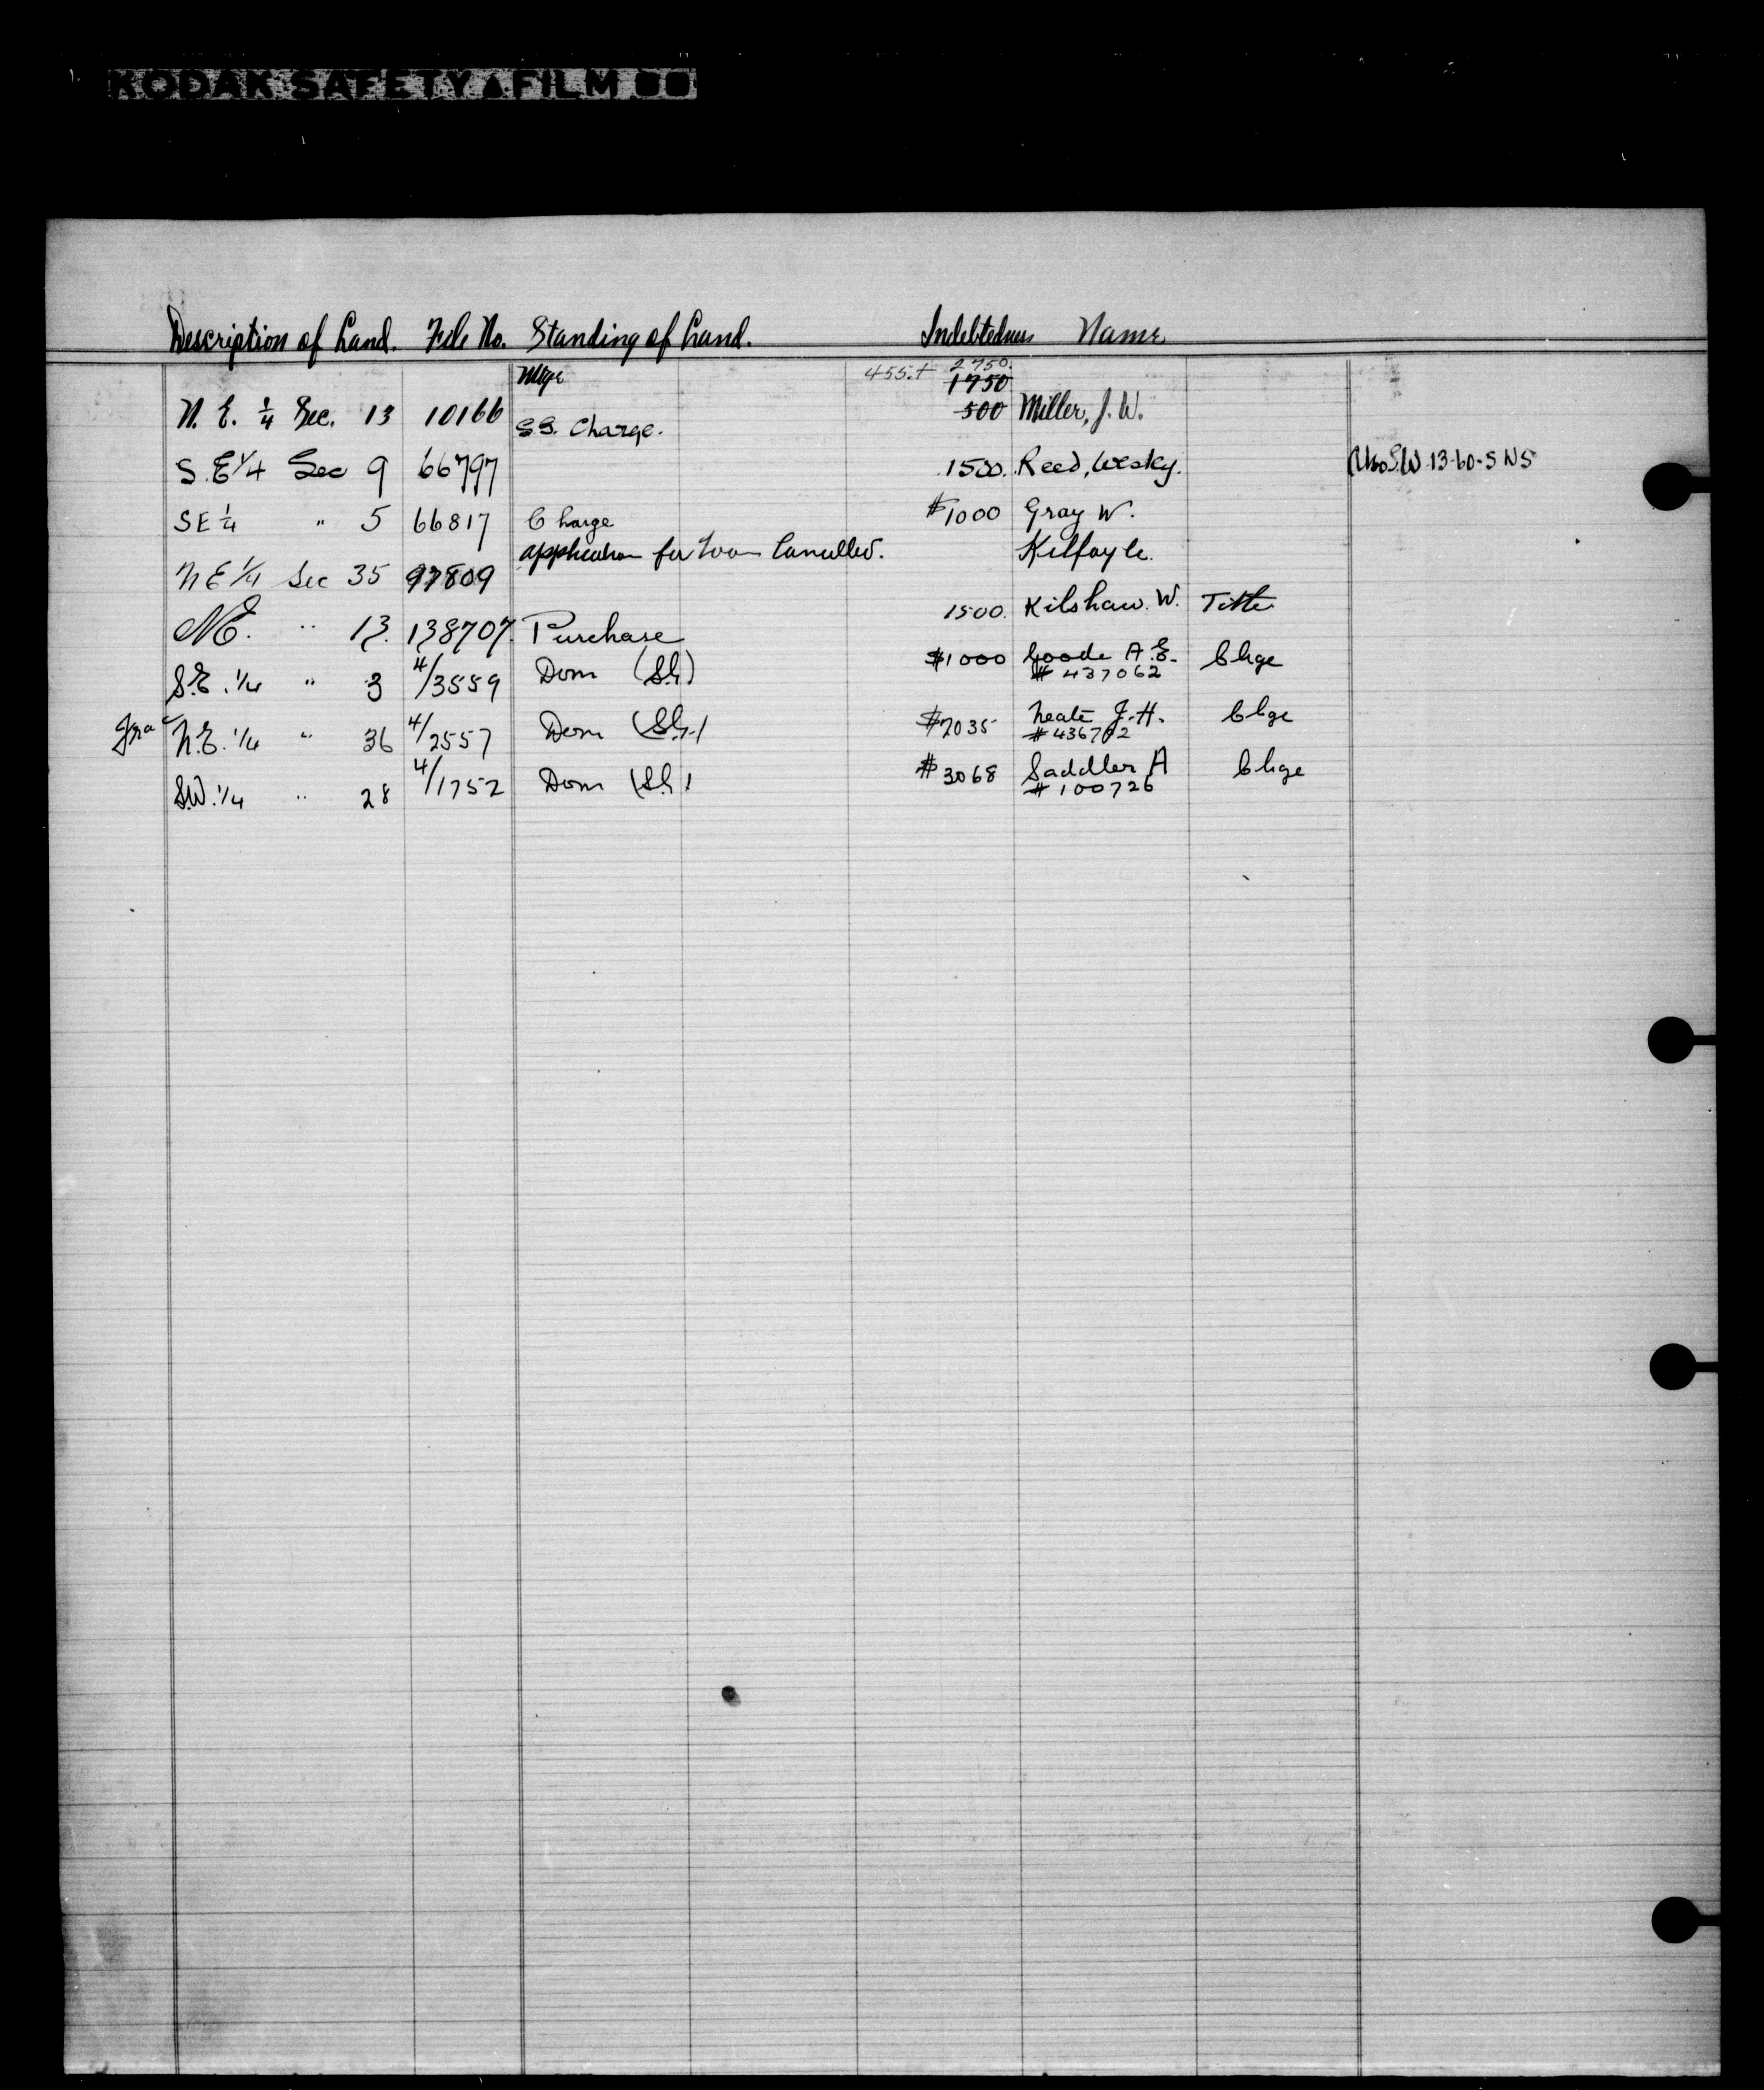 KODAK SAFETY FILM
Description of Land. File No. Standing of Land. Indebtedness Name
Mtge 455.+ 2750.
1750
N. E. ¼ Sec. 13 10166 S.S. Charge. 500 Miller, J. W.
S. E ¼ Sec 9 66797 1500. Reed, Wesley. Also S.W 13-60-5 W5
SE ¼ " 5 66817 Charge $1000 Gray W.
NE ¼ Sec 35 97809 application for Loan Cancelled. Kilfoyle.
NE. " 13. 138707. Purchase 1500. Kilshaw. W. Title
S.E. ¼ " 3 4/3559 Dom (S.G.) $1000 Goode A. E. Chge
# 437062
Fra N.E. ¼ " 36 4/2557 Dom (S.G.) $2035 Neate J. H. Chge
# 436702
S.W. ¼ " 28 4/1752 Dom (S.G.) $3068 Saddler A Chge
# 100726